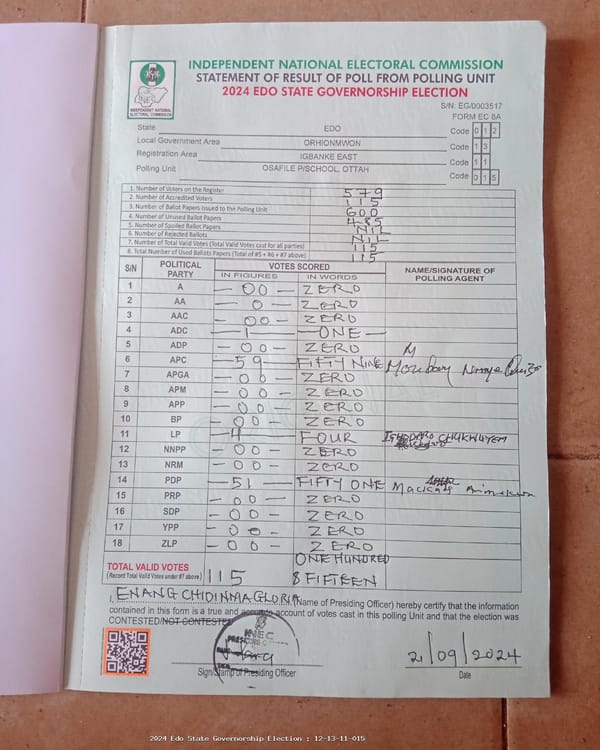 INDEPENDENT NATIONAL ELECTORAL COMMISSION
STATEMENT OF RESULT OF POLL FROM POLLING UNIT
2024 EDO STATE GOVERNORSHIP ELECTION
INEC
INDEPENDENT NATIONAL ELECTORAL COMMISSION
S/N: EG/0003517
FORM EC 8A
State EDO Code 0 1 2
Local Government Area ORHIONMWON Code 1 3
Registration Area IGBANKE EAST Code 1 1
Polling Unit OSAFILE P/SCHOOL, OTTAH Code 0 1 5
1. Number of Voters on the Register 579
2. Number of Accredited Voters 115
3. Number of Ballot Papers Issued to the Polling Unit 600
4. Number of Unused Ballot Papers 485
5. Number of Spoiled Ballot Papers NIL
6. Number of Rejected Ballots NIL
7. Number of Total Valid Votes (Total Valid Votes cast for all parties) 115
8. Total Number of Used Ballots Papers (Total of #5 + #6 + #7 above) 115
S/N POLITICAL PARTY VOTES SCORED NAME/SIGNATURE OF POLLING AGENT
IN FIGURES IN WORDS
1 A – 00 – ZERO
2 AA – 0 – ZERO
3 AAC – 00 – ZERO
4 ADC – 1 – ONE –
5 ADP – 00 – ZERO
6 APC – 59 – FIFTY NINE Monday
7 APGA – 00 – ZERO
8 APM – 00 – ZERO
9 APP – 00 – ZERO
10 BP – 00 – ZERO
11 LP – 4 – FOUR
12 NNPP – 00 – ZERO
13 NRM – 00 – ZERO
14 PDP – 51 – FIFTY ONE
15 PRP – 00 – ZERO
16 SDP – 00 – ZERO
17 YPP – 00 – ZERO
18 ZLP – 00 – ZERO
TOTAL VALID VOTES
(Record Total Valid Votes under #7 above) 115 ONE HUNDRED & FIFTEEN
I, ENANG CHIDINMA GLORIA (Name of Presiding Officer) hereby certify that the information
contained in this form is a true and accurate account of votes cast in this polling Unit and that the election was
CONTESTED/NOT CONTESTED
INEC
PRESIDING
Sign/Stamp of Presiding Officer
21/09/2024
Date
2024 Edo State Governorship Election : 12-13-11-015